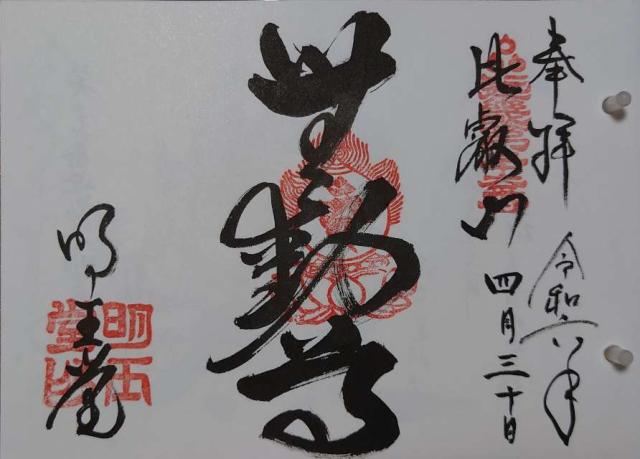 奉拝 令和六年
比叡山 四月三十日
無動尊
明王堂
明王堂印